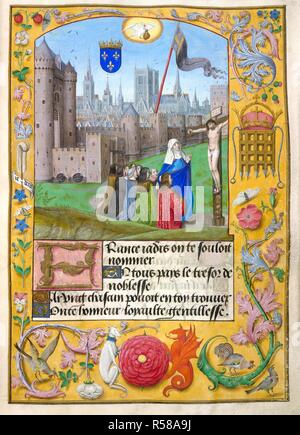 France iadis on te souloit
nommer
En tous pays le tresor de
noblesse
Car vng chascun pouoit en toy trouuer
Bonte honneur loyaulte gentillesse.